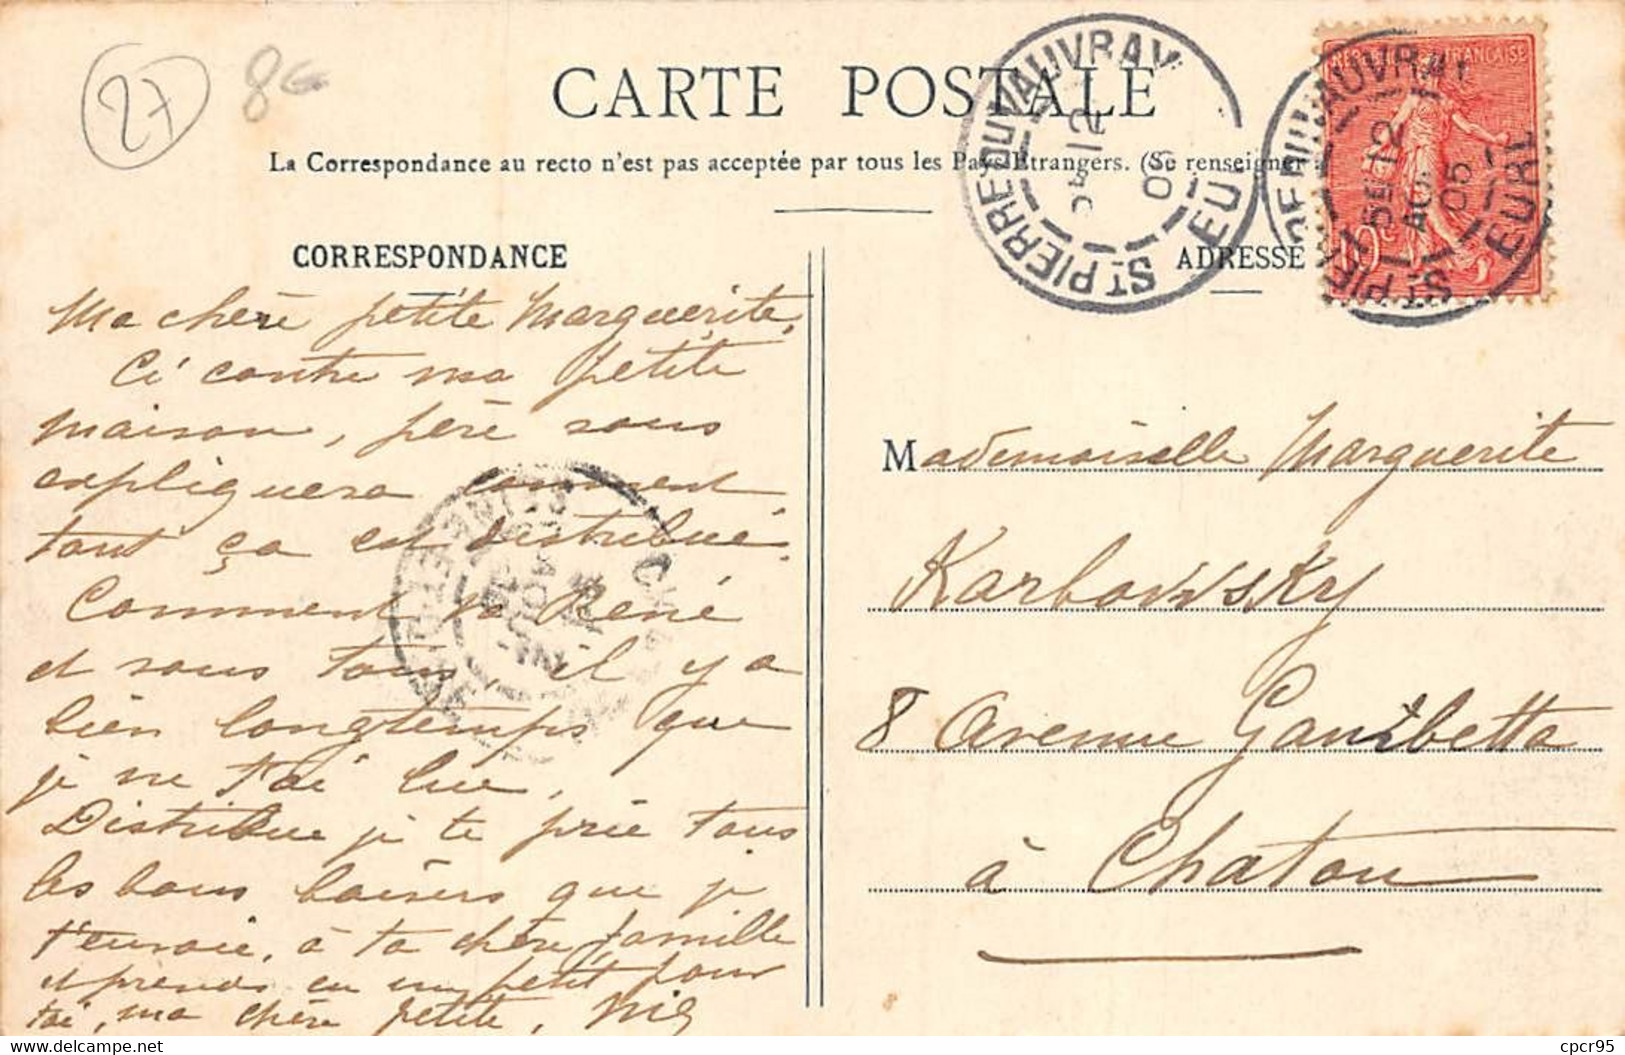 27
86
CARTE POSTALE
La Correspondance au recto n'est pas acceptée par tous les Pays Etrangers. (Se renseigner à
CORRESPONDANCE
Ma chère petite Marguerite,
Ci contre ma petite
maison, père vous
expliquera comment
tout ça est distribué.
Comment va René
et vous tous, il y a
bien longtemps que
je ne t'ai lue,
Distribue je te prie tous
les bons baisers que je
t'envoie, à ta chère famille
et prends en un petit pour
toi, ma chère petite,
ADRESSE
Mademoiselle Marguerite
Karbowsky
8 Avenue Gambetta
à Chatou
ST PIERRE DU VAUVRAY
12
05
EU
ST PIERRE DU VAUVRAY
5E 12
AOU
05
EURE
FRANÇAISE
10c
SEINE-ET-OISE
cpcr95